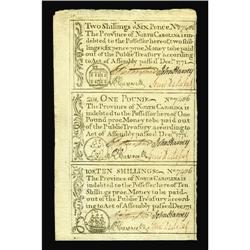 Two Shillings & Six Pence. No 7506
The Province of NORTH CAROLINA is
indebted to the Possessor hereof two shil-
lings & six pence proc. Money to be paid
out of the Public Treasury according
to Act of Assembly passed Decr. 1771.
John Harvey
20s. ONE POUND. No 7506
The Province of NORTH CAROLINA is
indebted to the Possessor hereof One
Pound proc. Money to be paid out of
the Public Treasury according
to Act of Assembly passed Decr. 1771
John Harvey
10s. TEN SHILLINGS. No 7506
The Province of NORTH CAROLINA is
indebted to the Possessor hereof Ten
Shillings proc. Money to be paid
out of the Public Treasury according
to Act of Assembly passed Decr. 1771
John Harvey